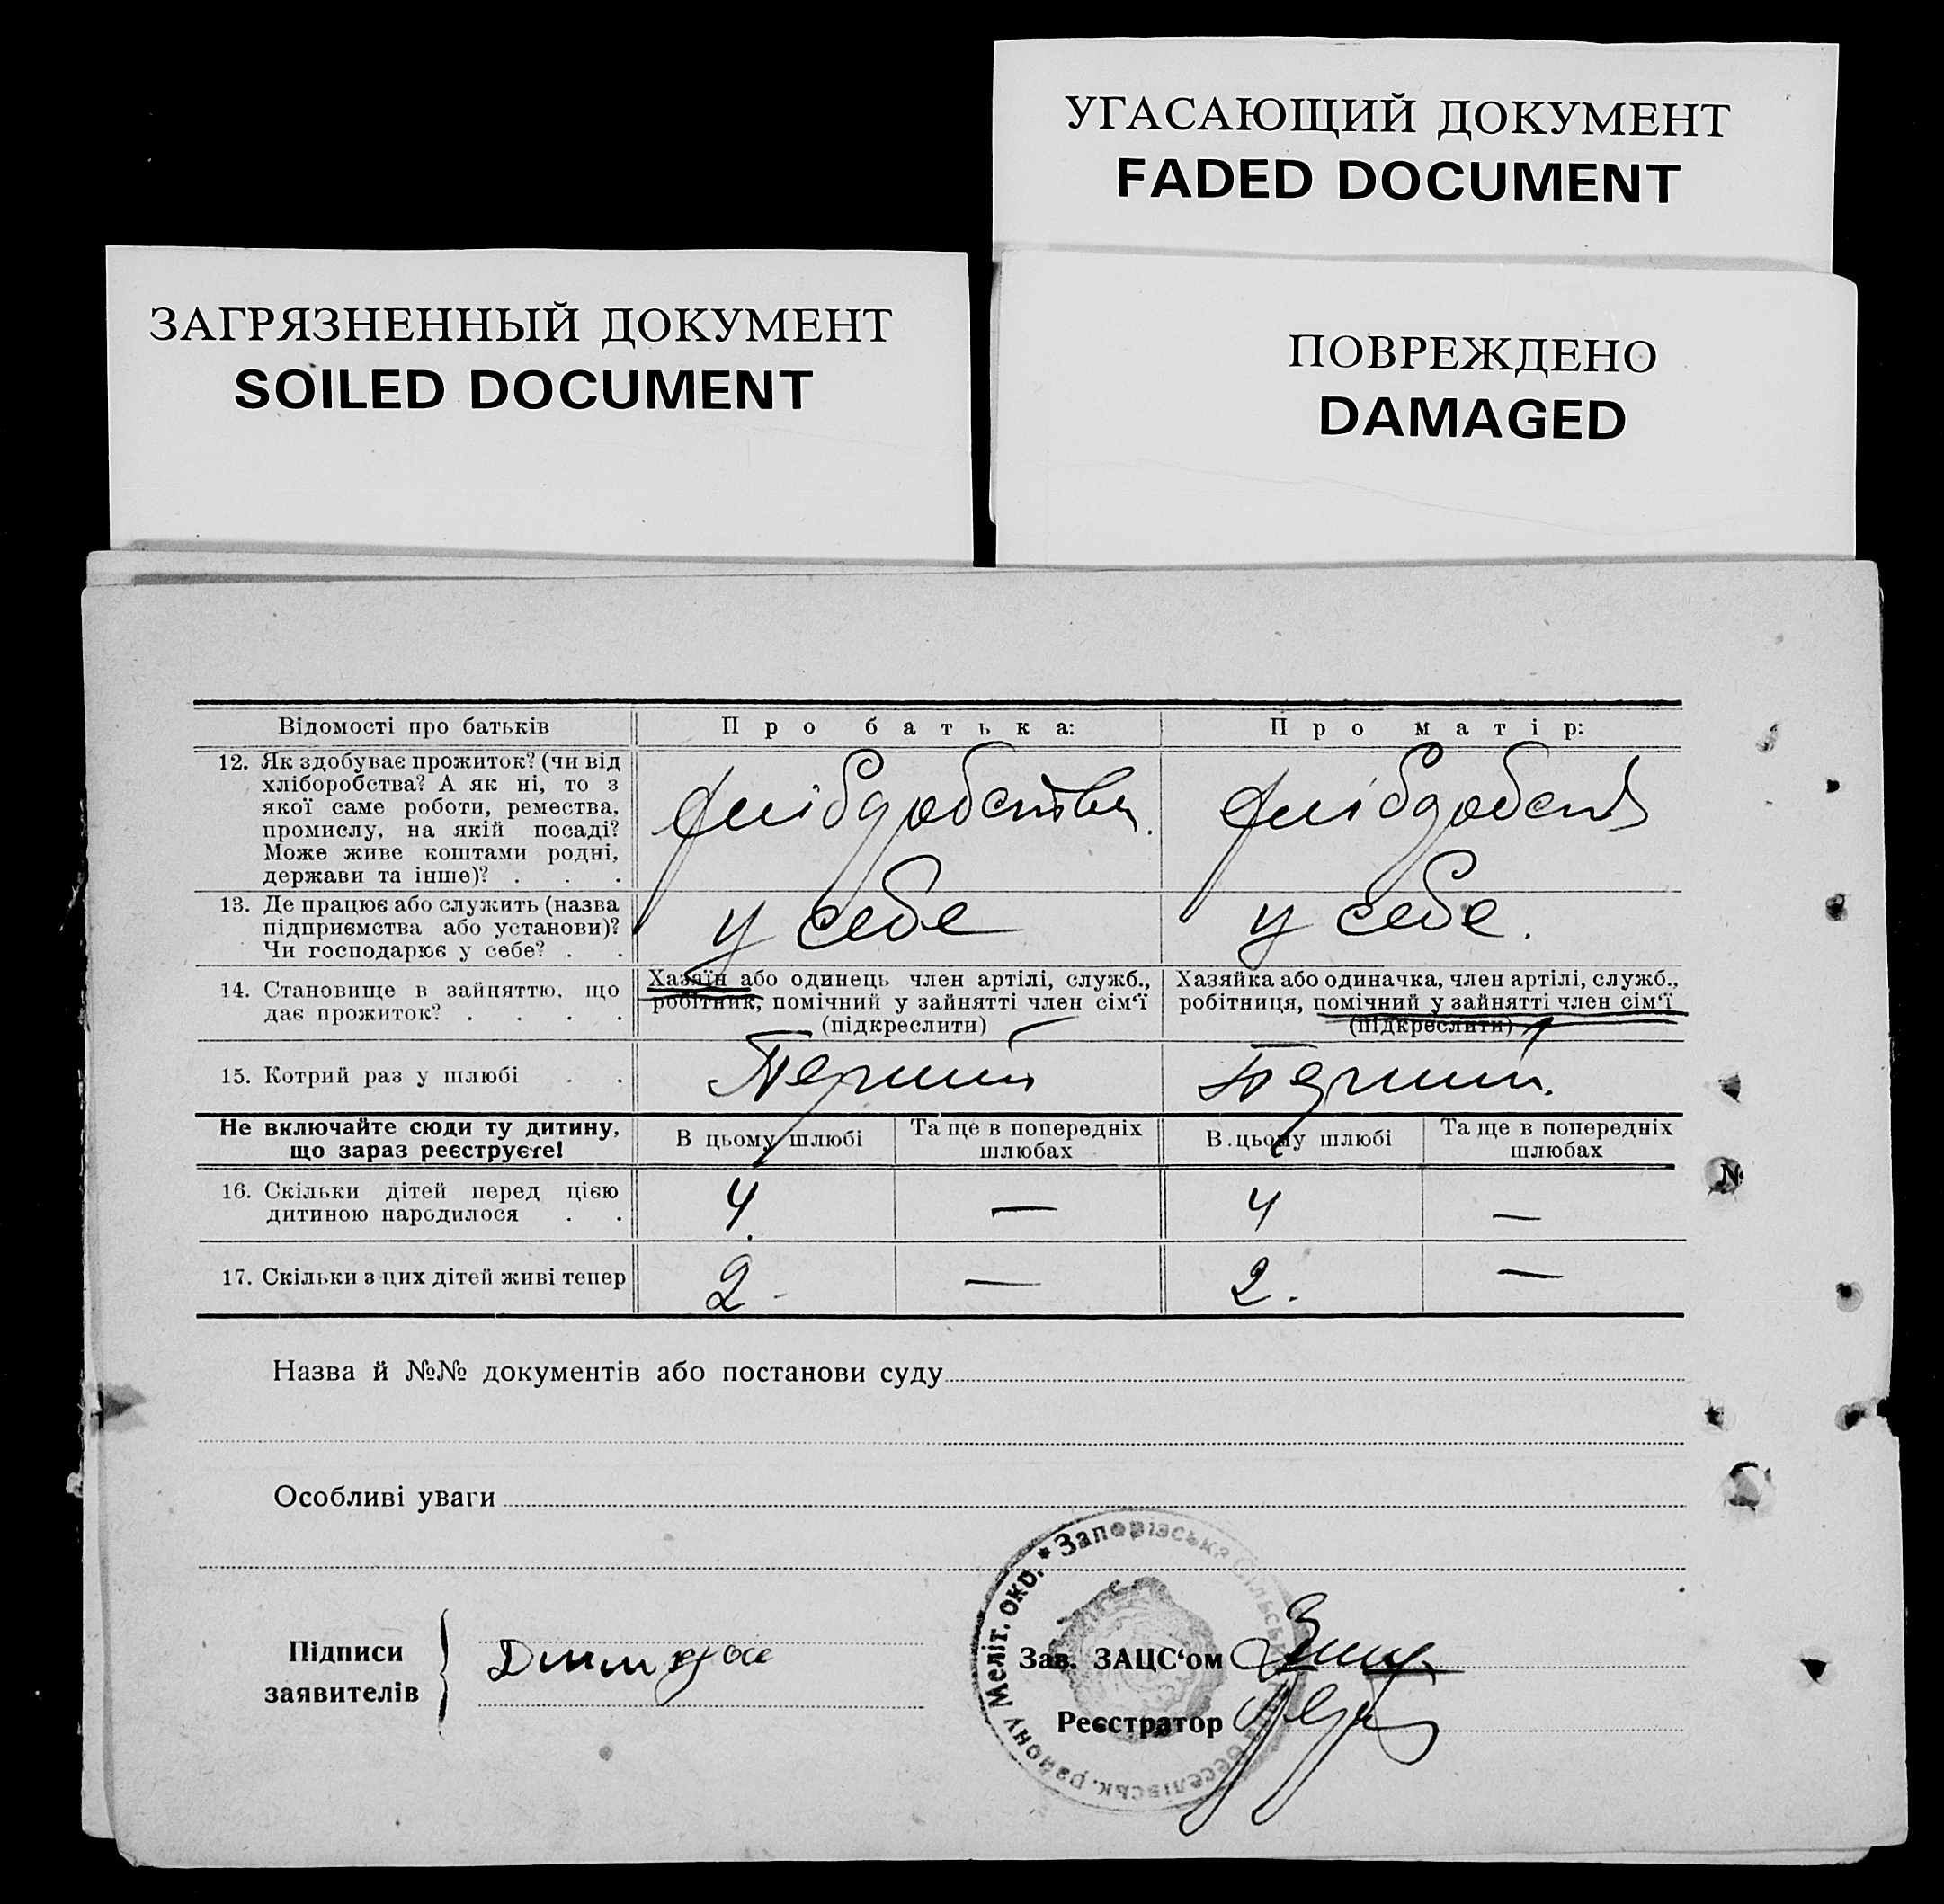 УГАСАЮЩИЙ ДОКУМЕНТ
FADED DOCUMENT
ЗАГРЯЗНЕННЫЙ ДОКУМЕНТ
SOILED DOCUMENT
ПОВРЕЖДЕНО
DAMAGED
Відомості про батьків
Про батька:
Про матір:
12. Як здобуває прожиток? (чи від
хліборобства? А як ні, то з
якої саме роботи, ремества,
промислу, на якій посаді?
Може живе коштами родні,
держави та інше)? . . .
13. Де працює або служить (назва
підприємства або установи)?
Чи господарює у себе? . .
у себе
у себе.
14. Становище в зайняттю, що
дає прожиток? . . . .
Хазяїн або одинець член артілі, служб.,
робітник, помічний у зайнятті член сім‘ї
(підкреслити)
Хазяйка або одиначка, член артілі, служб.,
робітниця, помічний у зайнятті член сім‘ї
(підкреслити)
15. Котрий раз у шлюбі . .
Перший
Перший.
Не включайте сюди ту дитину,
що зараз реєструєте!
В цьому шлюбі
Та ще в попередніх
шлюбах
В цьому шлюбі
Та ще в попередніх
шлюбах
16. Скільки дітей перед цією
дитиною народилося . .
4
—
4
—
17. Скільки з цих дітей живі тепер
2
—
2.
—
Назва й №№ документів або постанови суду
Особливі уваги
Підписи
заявителів
Зав. ЗАЦС‘ом
Реєстратор
* Запорізська Сільськ. Веселівськ. району Меліт. окр.